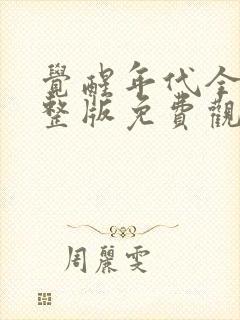 覺醒年代全
整版免費觀
周麗雯